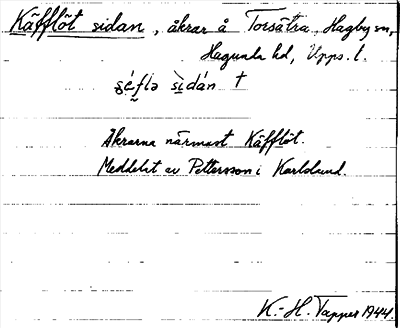 Käfflöt sidan, åkrar å Torsätra, Hagby sn,
Hagunda hd, Upps. l.
sidan †
Åkrarna närmast Käfflöt.
Meddelat av Pettersson i Karlslund.
K.-H. Tapper 1944.